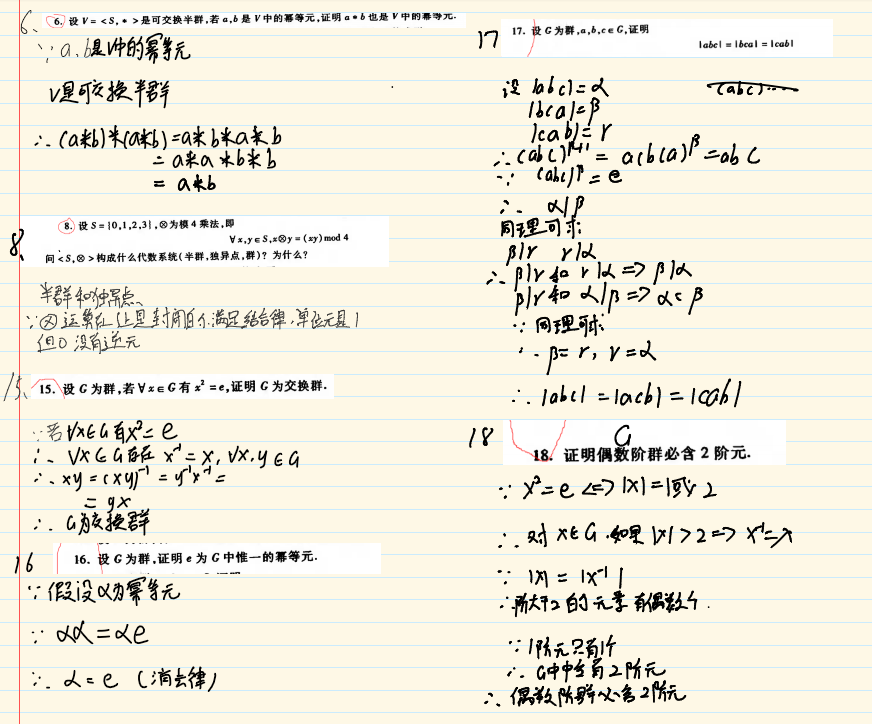 6.
6. 设 V = <S, * >是可交换半群,若 a,b 是 V 中的幂等元,证明 a * b 也是 V 中的幂等元.
∵ a、b是V中的幂等元
V是可交换半群
∴ (a*b)*(a*b)=a*b*a*b
= a*a*b*b
= a*b
8.
8. 设 S = {0,1,2,3},⊗为模 4 乘法,即
∀ x,y∈S,x⊗y = (xy) mod 4
问 <S,⊗ >构成什么代数系统(半群,独异点,群)? 为什么?
半群和独异点、
∵ ⊗运算在 上是封闭 满足结合律,单位元是1
但0没有逆元
15、
15. 设 G 为群,若 ∀x∈G 有 x² = e,证明 G 为交换群.
∵若∀x∈G有x²=e
∴ ∀x∈G存在 x⁻¹=x, ∀x,y∈G
∴ xy = (xy)⁻¹ = y⁻¹x⁻¹ =
= yx
∴ G为交换群
16
16. 设 G 为群,证明 e 为 G 中惟一的幂等元.
∵假设α为幂等元
∵ αα=αe
∴ α=e (消去律)
17
17. 设 G 为群,a,b,c∈G,证明
|abc| = |bca| = |cab|
设 |abc|=α
(abc)
|bca|=β
|cab|=r
∴ (abc)^β⁺¹ = a(bca)^β = abc
∵ (abc)^β = e
∴ α|β
同理可求:
β|r r|α
∴ β|r和 r|α => β|α
β|r和 α|β => α= β
∵ 同理可求:
∴ β=r, r=α
∴ |abc| =|acb| =|cab|
18
G
18. 证明偶数阶群必含 2 阶元.
∵ x²=e <=> |x|=1或 2
∴ 对x∈G,如果 |x|>2 => x⁻¹=x
∵ |x| = |x⁻¹|
∴阶大于2的元素有偶数个.
∵1阶元只有1个
∴ G中 有2阶元
∴ 偶数阶群必含2阶元